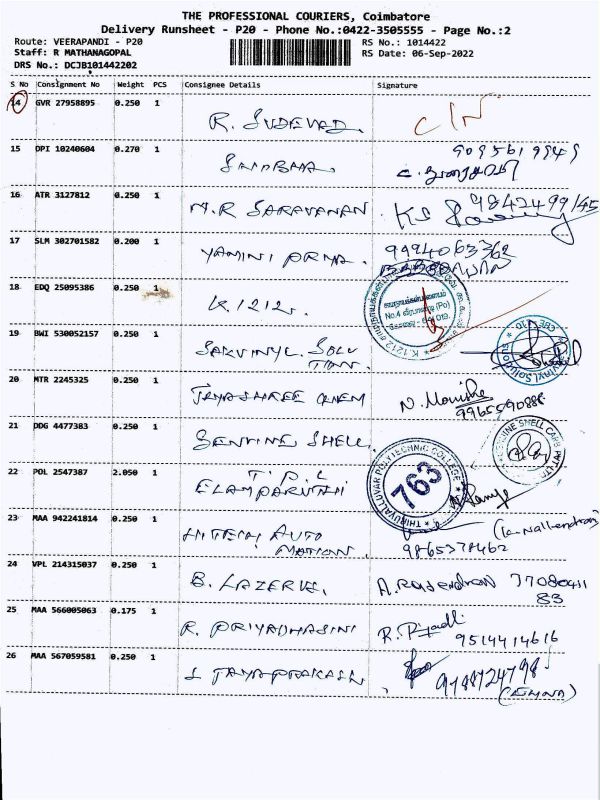 THE PROFESSIONAL COURIERS, Coimbatore
Delivery Runsheet - P20 - Phone No.:0422-3505555 - Page No.:2
Route: VEERAPANDI - P20
RS No.: 1014422
Staff: R MATHANAGOPAL
RS Date: 06-Sep-2022
DRS No.: DCJB101442202
S No Consignment No Weight PCS Consignee Details Signature
14 GVR 27958895 0.250 1
R. SUDEVAD.
15 DPI 10240604 0.270 1
9095619949
16 ATR 3127812 0.250 1
M.R SARAVANAN
9842499145
17 SLM 302701582 0.200 1
YAMINI PRIYA.
9994063362
18 EDQ 25095386 0.250 1
K.1212.
No.4 வீரபாண்டி (Po)
19 BWI 530052157 0.250 1
SARVINYL. SOLU
TION.
20 MTR 2245325 0.250 1
JAYASHREE CHEM
N. Manisha
9965590888
21 DDG 4477383 0.250 1
SENTINE SHELL.
22 POL 2547387 2.050 1
T. P. C
ELAMPARUTHI
THIRUVALLUVAR POLYTECHNIC COLLEGE
763
23 MAA 942241814 0.250 1
HITECH AUTO
MATION.
9865378462
24 VPL 214315037 0.250 1
B. LAZERVE.
A. Rajendran 77080411
83
25 MAA 566005063 0.175 1
R. PRIYADHASINI
R. Piyadli
9514414616
26 MAA 567059581 0.250 1
S JAYAPRAKASH
9788724798